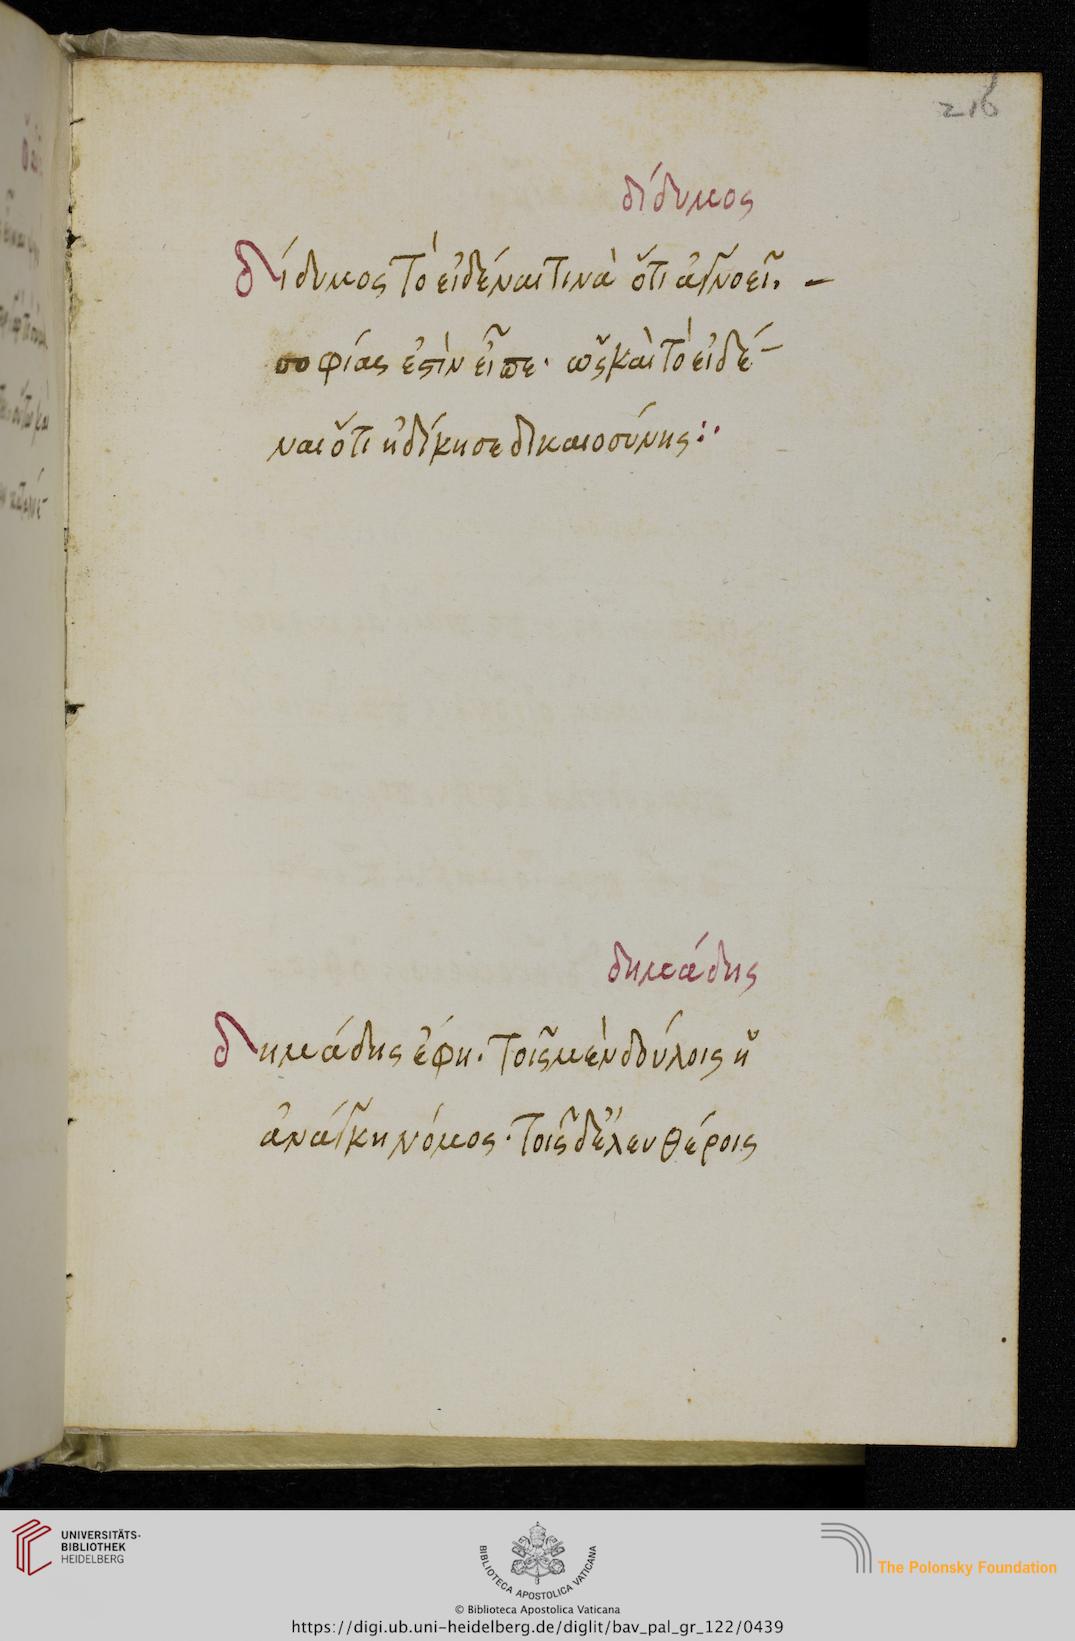 216
δίδυμος
Δίδυμος τὸ εἰδέναι τινὰ ὅτι ἀγνοεῖ. –
σοφίας ἐστὶν εἶπε· ὡς καὶ τὸ εἰδέ-
ναι ὅτι ἠδίκησε δικαιοσύνης:·
δημάδης
Δημάδης ἔφη· τοῖς μὲν δούλοις ἡ
ἀνάγκη νόμος· τοῖς δὲ ἐλευθέροις
UNIVERSITÄTS-
BIBLIOTHEK
HEIDELBERG
BIBLIOTECA APOSTOLICA VATICANA
The Polonsky Foundation
© Biblioteca Apostolica Vaticana
https://digi.ub.uni-heidelberg.de/diglit/bav_pal_gr_122/0439